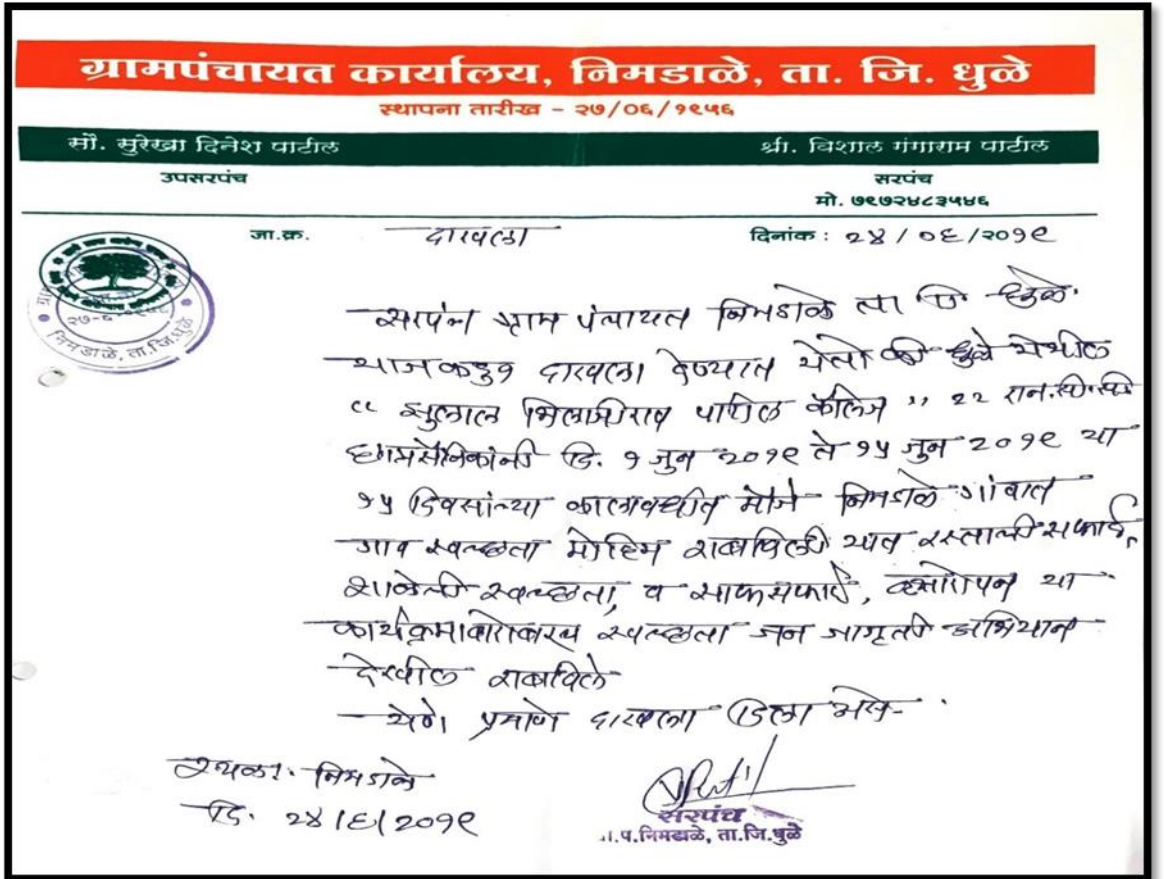 ग्रामपंचायत कार्यालय, निमडाळे, ता. जि. धुळे
स्थापना तारीख - २७/०६/१९५६
सौ. सुरेखा दिनेश पाटील श्री. विशाल गंगाराम पाटील
उपसरपंच सरपंच
मो. ७९७२४८३५४६
जा.क्र. दाखला दिनांक : २४/०६/२०१९
सरपंच ग्राम पंचायत निमडाळे ता जि धुळे.
याजकडुन दाखला देण्यात येतो की धुळे येथील
" झुलाल भिलाजीराव पाटील कॉलेज " २२ एन.सी.सी
छात्रसैनिकांनी दि. १ जुन २०१९ ते १५ जुन २०१९ या
१५ दिवसांच्या कालावधीत मौजे निमडाळे गांवात
गाव स्वच्छता मोहिम राबविली यात रस्त्याची सफाई,
शाळेची स्वच्छता, व साफसफाई, वृक्षारोपन या
कार्यक्रमाबरोबरच स्वच्छता जन जागृती अभियान
देखील राबविले
येणे प्रमाणे दाखला दिला असे.
स्थळ: निमडाळे
दि. २४/६/२०१९
सरपंच
ग्रा.प.निमडाळे, ता.जि.धुळे
निमडाळे, ता.जि.धुळे